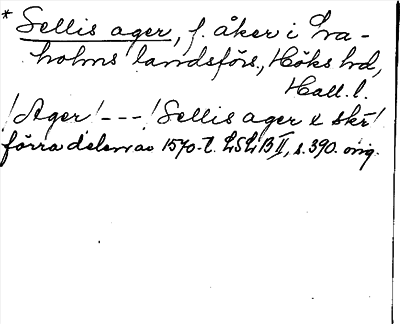 * Sellis ager, f. åker i La-
holms landsförs., Höks hd,
Hall. l.
! Ager! ---! Sellis ager x skr!
förra delen av 1570-t. LSLB II, s. 390. orig.